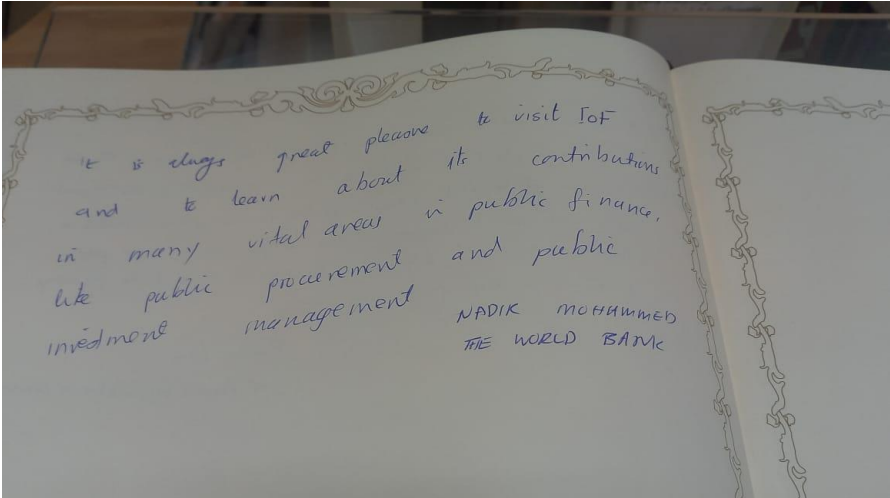 it is always great pleasure to visit IoF
and to learn about its contributions
in many vital areas in public finance,
like public procurement and public
investment management
NADIR MOHAMMED
THE WORLD BANK